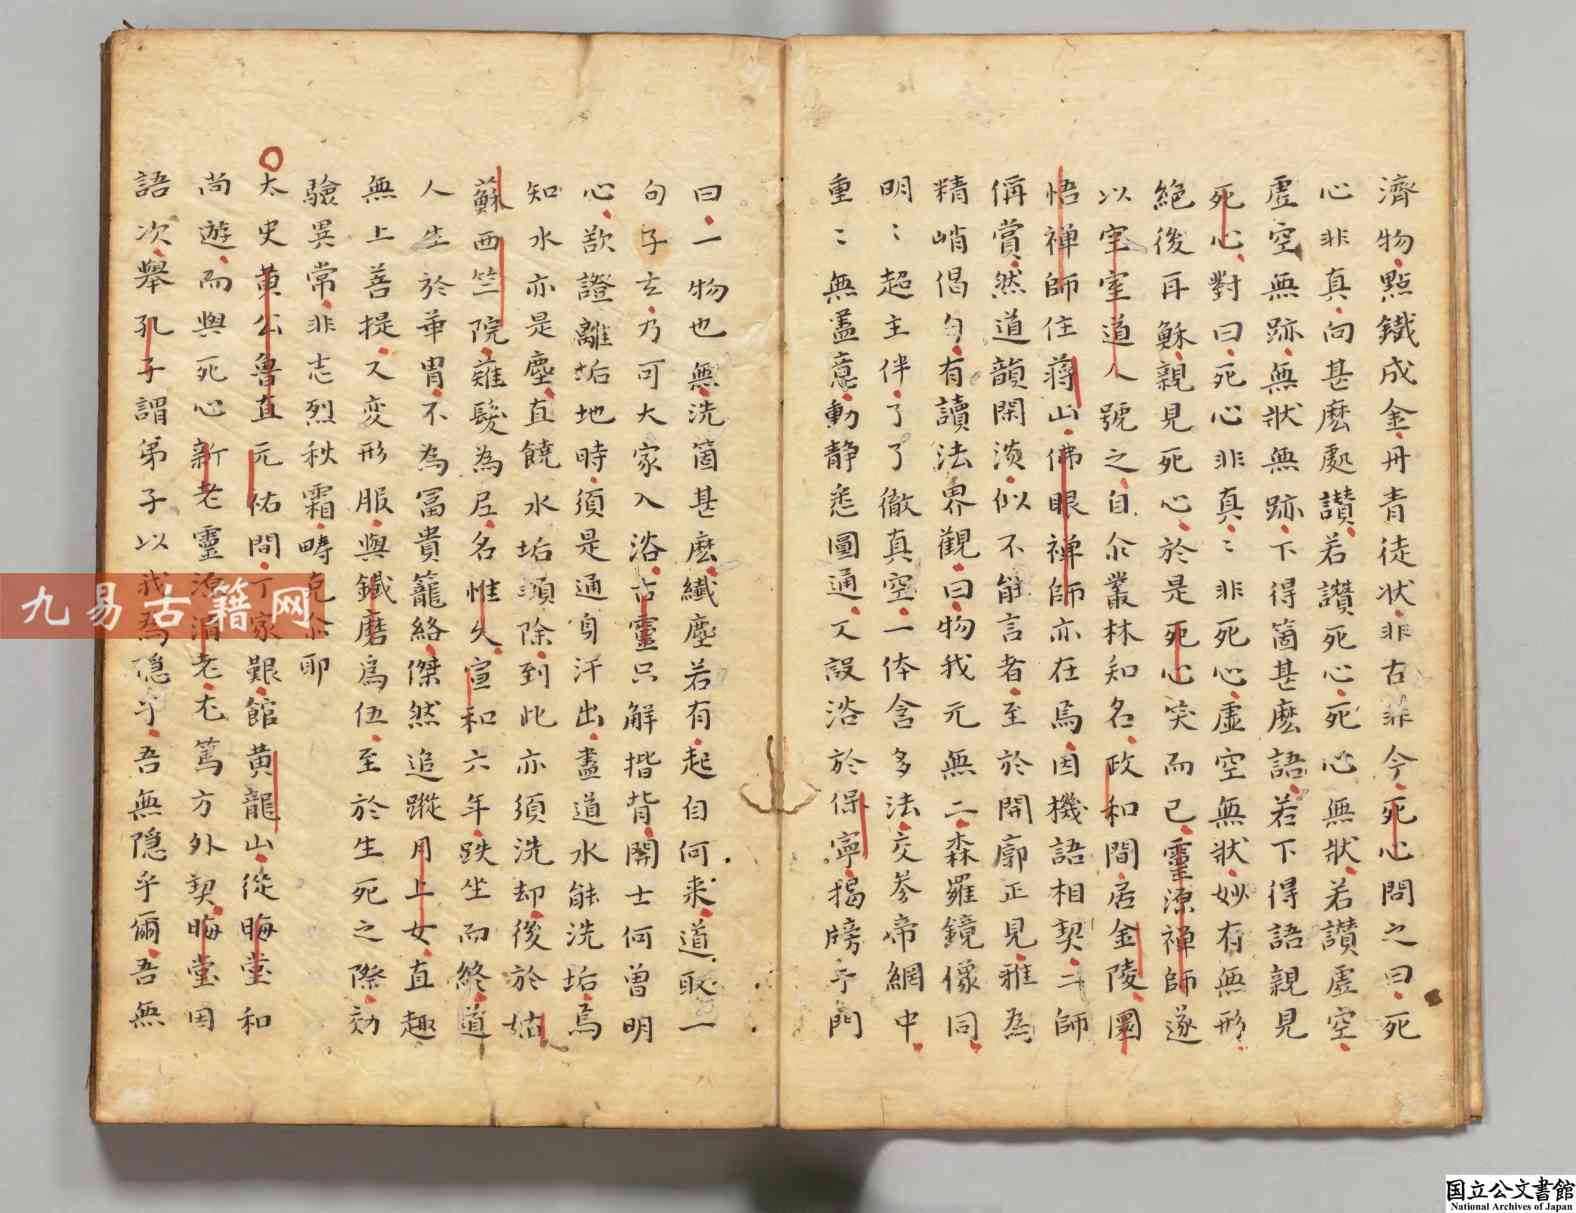 濟物點鐵成金丹青徒狀非古非今死心問之曰死
心非真向甚麽處讃若讃死心死心無狀若讃虛空
虛空無跡無狀無跡下得箇甚麽語若下得語親見
死心對曰死心非真〻非死心虛空無狀妙有無形
絕後再穌親見死心於是死心突而已靈源禪師遂
以空室道人號之自尒叢林知名政和間居金陵圜
悟禪師住蔣山佛眼禪師亦在焉因機語相契二師
偁賞然道韻閑淡似不能言者至於開廓正見雅為
精峭偈句有讀法界觀曰物我元無二森羅鏡像同
明〻超主伴了了徹真空一体含多法交參帝網中
重〻無盡意動静悉圓通又設浴於保寧揭牓于門
曰一物也無洗箇甚麽纖塵若有起自何来道取一
句子玄乃可大家入浴古靈只解揩背開士何曾明
心欲證離垢地時須是通身汗出盡道水能洗垢焉
知水亦是塵直饒水垢頓除到此亦須洗却後於姑
蘇西竺院薙髮為尼名惟久宣和六年趺坐而終道
人生於華胄不為冨貴籠絡傑然追蹤月上女直趣
無上菩提又変形服與鐵磨為伍至於生死之際効
驗異常非志烈秋霜疇克尒耶
太史黄公魯直元祐間丁家艱館黄龍山從晦堂和
尚遊而與死心新老靈源清老尤篤方外契晦堂因
語次舉孔子謂弟子以我為隱乎吾無隱乎爾吾無
九易古籍网
国立公文書館
National Archives of Japan